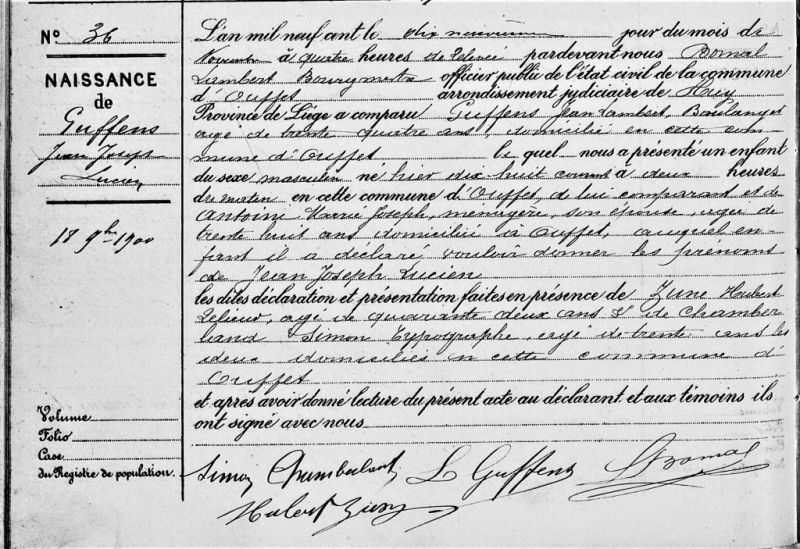 N° 36
NAISSANCE
de
Guffens
Jean Joseph
Lucien
18 9bre 1900
Volume
Folio
Case
du Registre de population.
L'an mil neuf cent le dix neuvième jour du mois de
Novembre à quatre heures de relevée pardevant nous Bomal
Lambert Bourgmestre officier public de l'état civil de la commune
d'Ouffet arrondissement judiciaire de Huy
Province de Liège a comparu Guffens Jean Lambert, Boulanger
agé de trente quatre ans, domicilié en cette com-
mune d'Ouffet lequel nous a présenté un enfant
du sexe masculin né hier dix huit courant à deux heures
du matin en cette commune d'Ouffet, de lui comparant et de
Antoine Marie Joseph, menagère, son épouse, agée de
trente huit ans domiciliée à Ouffet, auquel en-
fant il a déclaré vouloir donner les prénoms
de Jean Joseph Lucien
les dites déclaration et présentation faites en présence de Zune Hubert
agé de quarante deux ans & de Chamber
land Simon Typographe, agé de trente ans les
deux domiciliés en cette commune d'
Ouffet
et après avoir donné lecture du présent acte au déclarant et aux témoins ils
ont signé avec nous
Simon Chamberland L Guffens LBomal
Hubert Zune